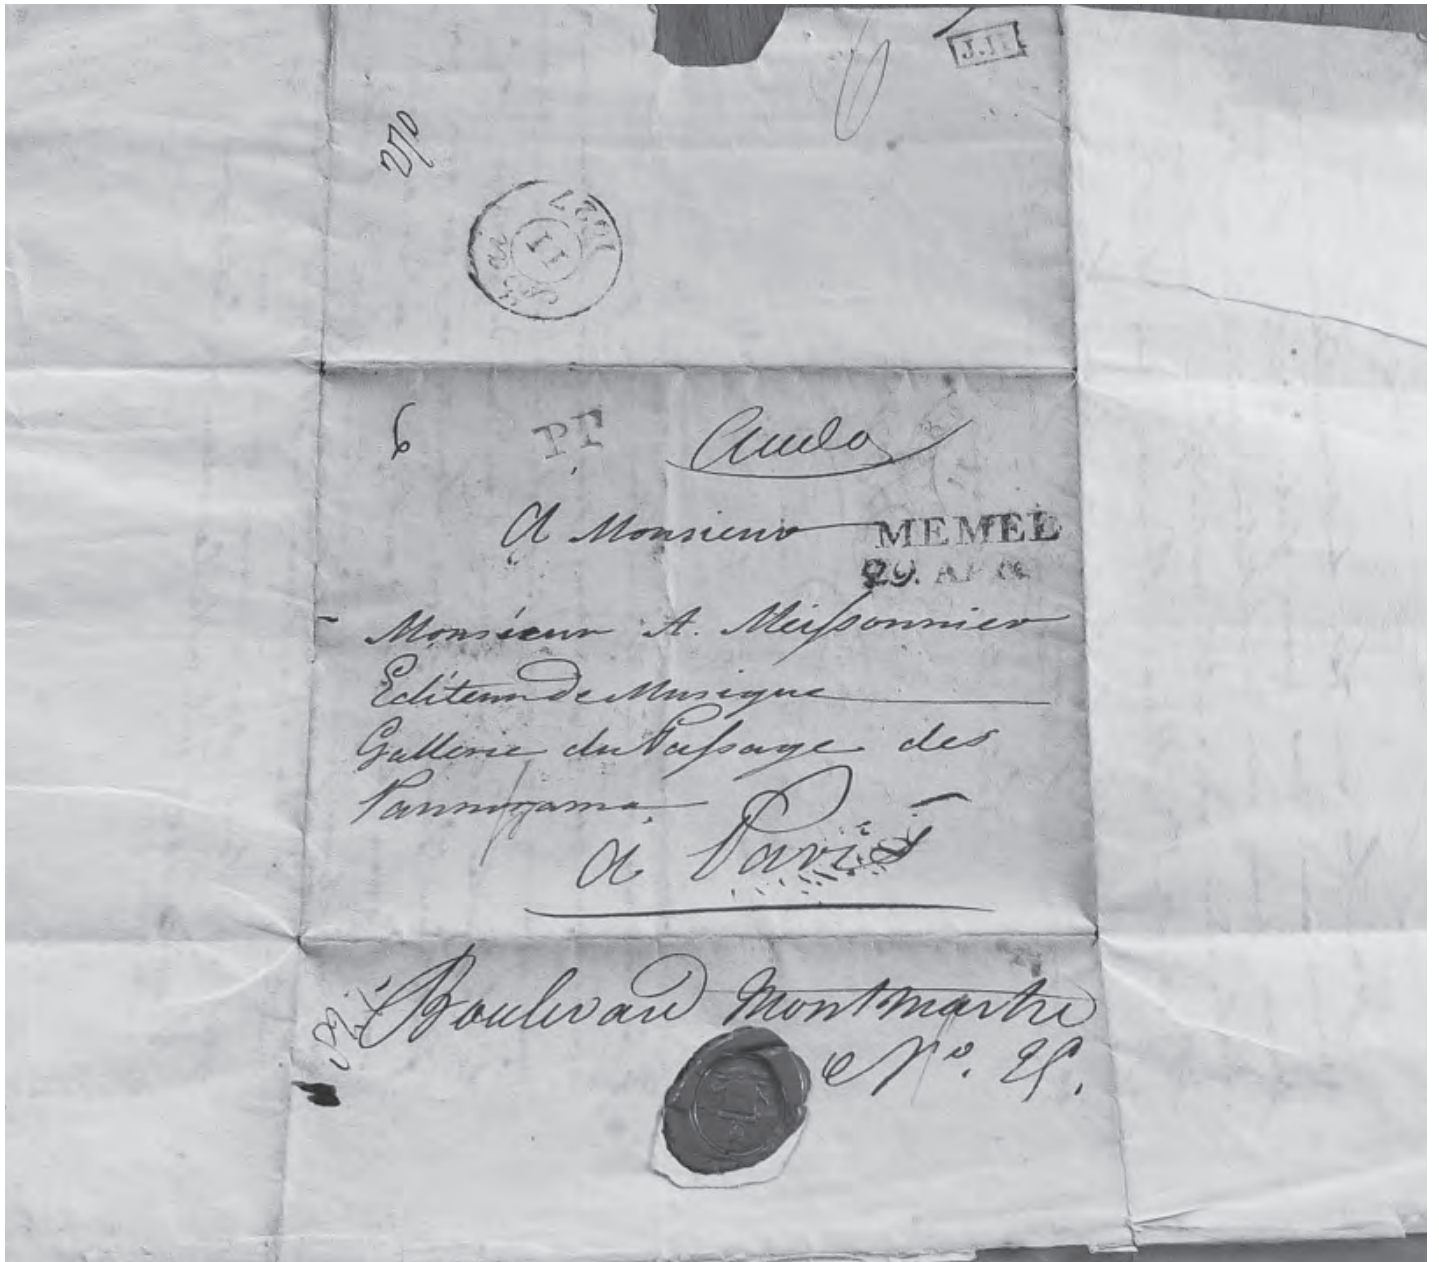 J.H
11
1827
6
PP
A Monsieur
MEMEL
29. AP
Monsieur A. Meiſsonnier
Editeur de Musique
Gallerie du Paſsage des
Pannorama
à Paris
Boulevard Montmartre
No. 25.